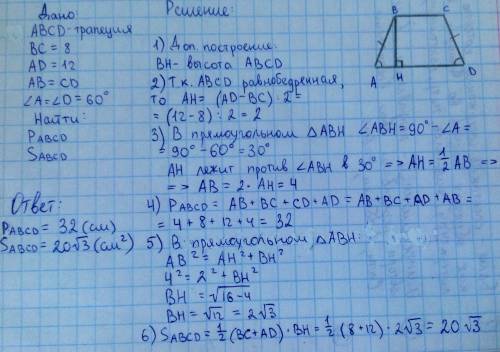 Дано:
ABCD-трапеция
BC = 8
AD = 12
AB = CD
∠A = ∠D = 60°
Найти:
PABCD
SABCD
Ответ:
PABCD = 32 (см)
SABCD = 20√3 (см²)
Решение:
1) Доп. построение:
BH- высота ABCD
2) Т.к. ABCD равнобедренная,
то AH = (AD-BC) : 2 =
= (12-8) : 2 = 2
3) В прямоугольном △ABH ∠ABH = 90° - ∠A =
= 90° - 60° = 30°
AH лежит против ∠ABH в 30° => AH = 1/2 AB =>
=> AB = 2 · AH = 4
4) PABCD = AB + BC + CD + AD = AB + BC + AD + AB =
= 4 + 8 + 12 + 4 = 32
5) В прямоугольном △ABH:
AB² = AH² + BH²
4² = 2² + BH²
BH = √16-4
BH = √12 = 2√3
6) SABCD = 1/2 (BC + AD) · BH = 1/2 (8 + 12) · 2√3 = 20√3
B C
A H D